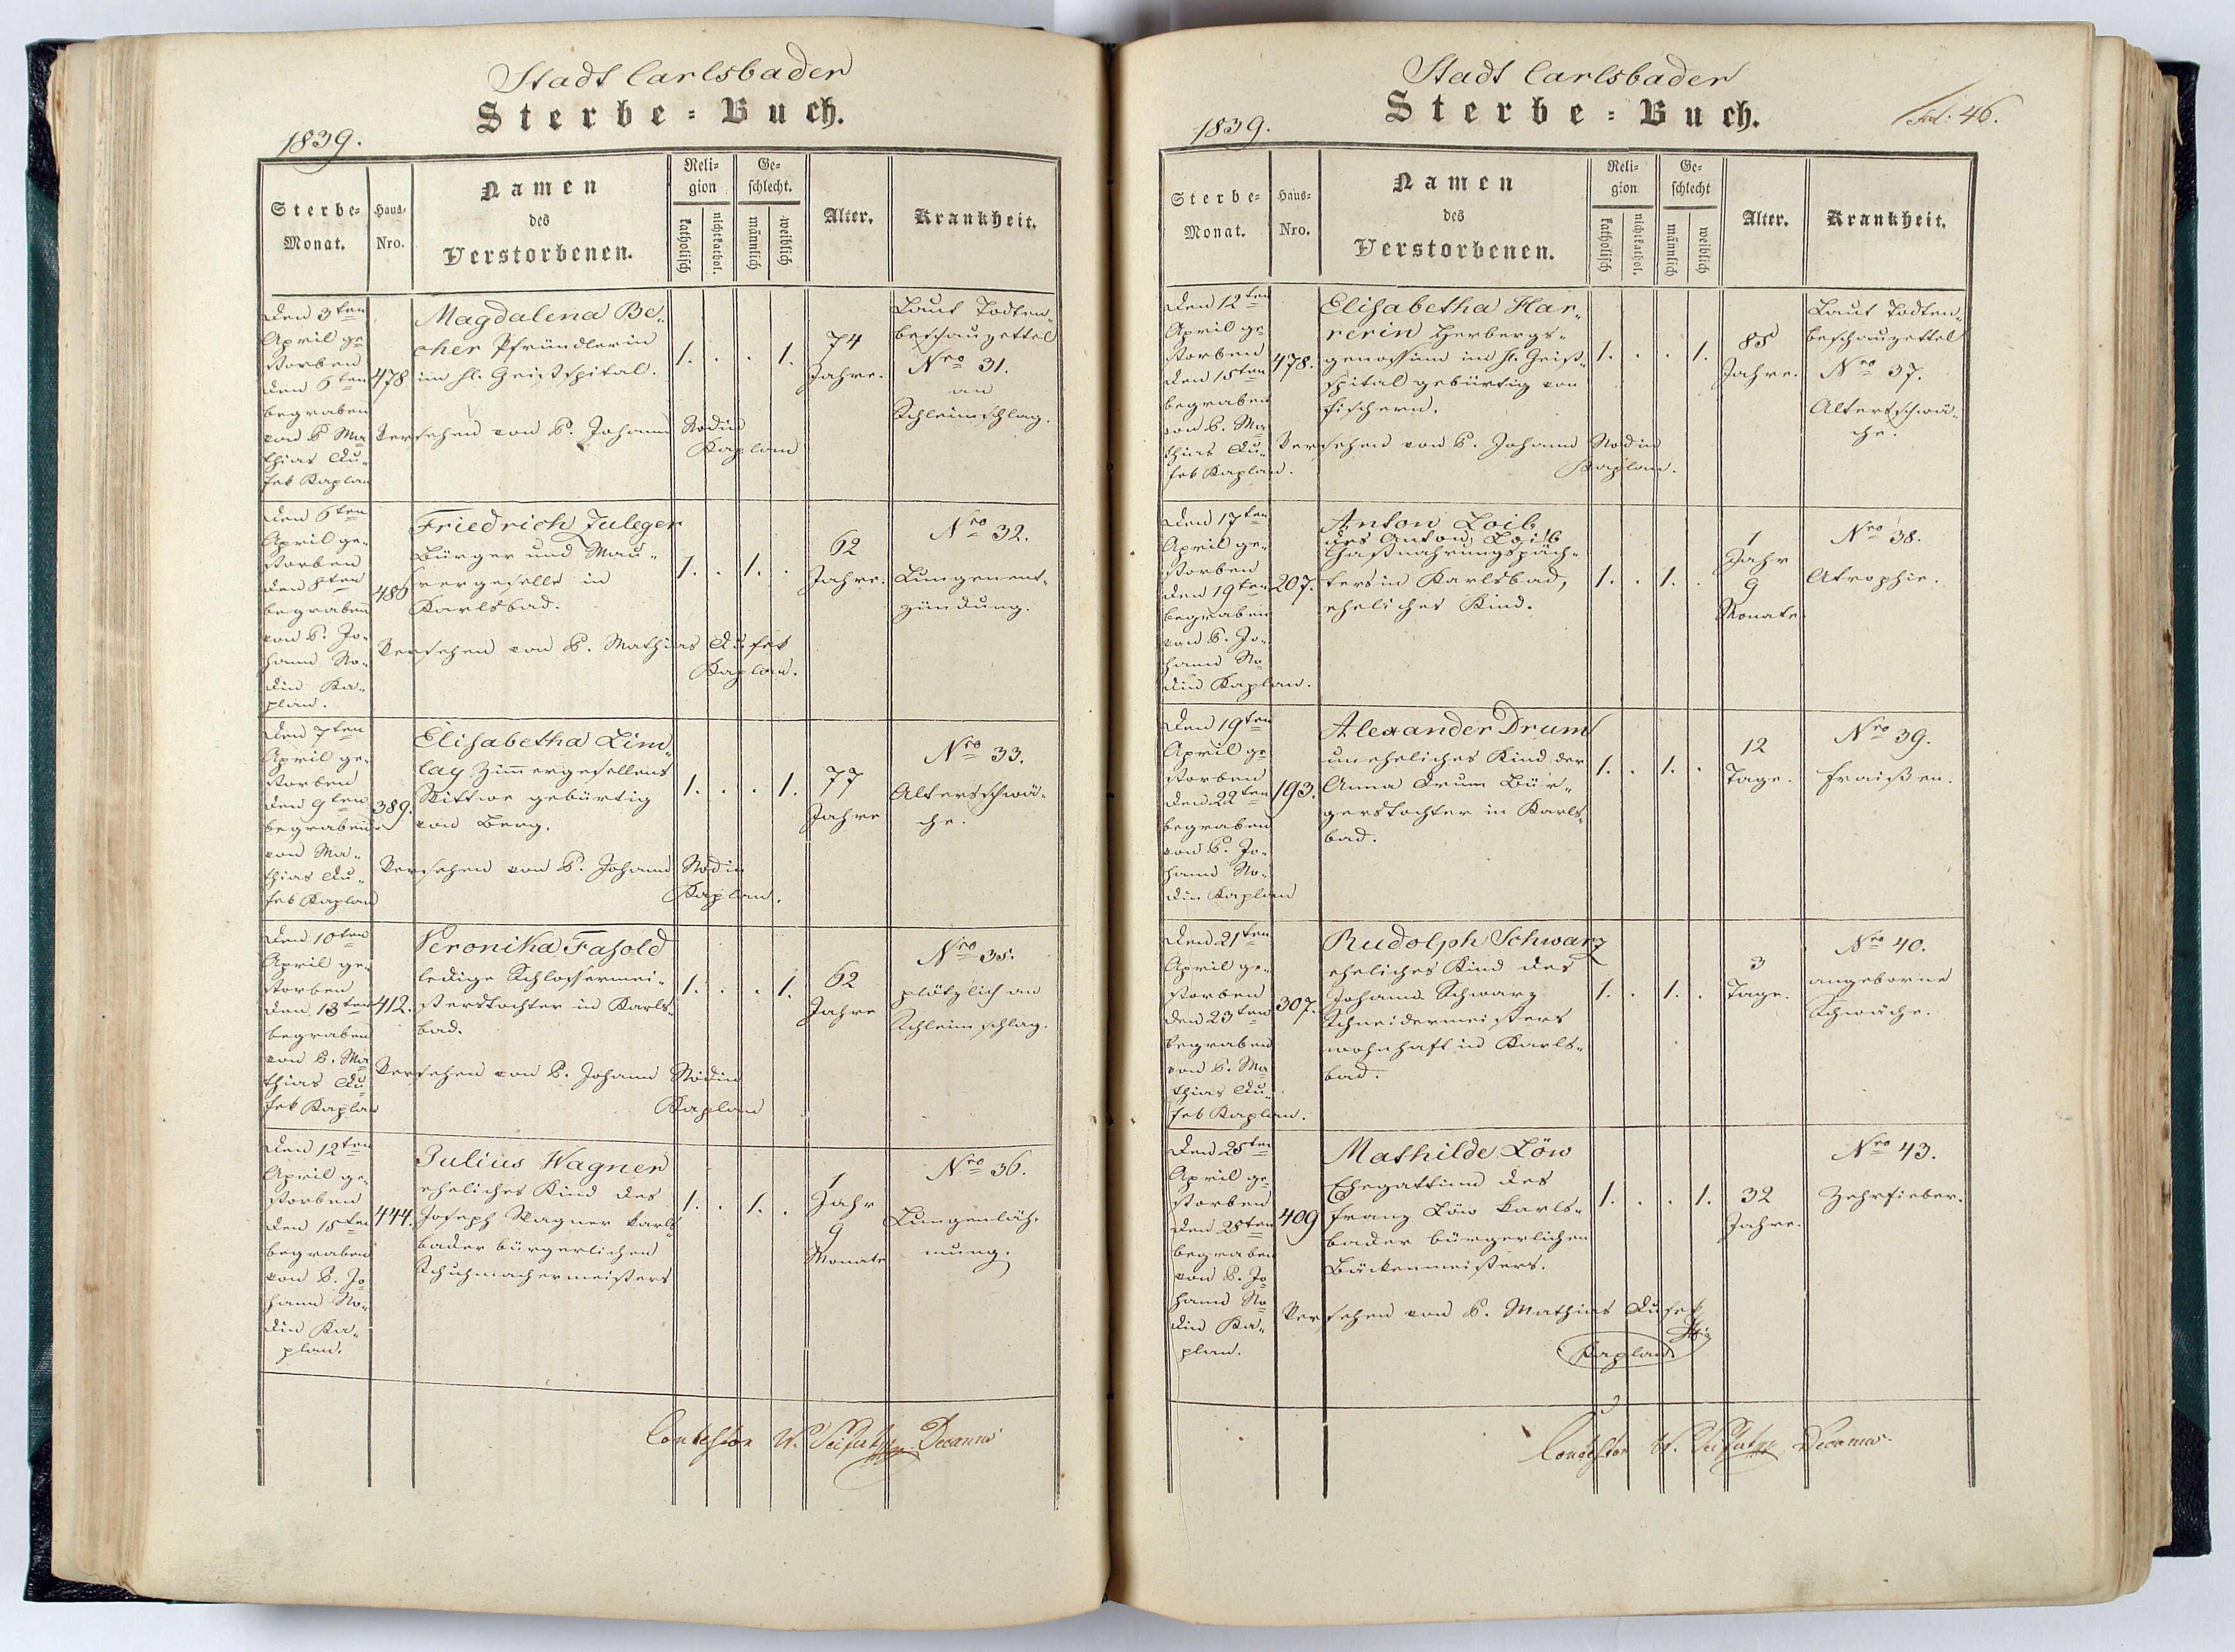 Stadt Carlsbader
Sterbe=Buch.
1839.
Sterbe=
Monat.
Haus=
Nro.
Namen
des
Verstorbenen.
Reli=
gion
katholisch
nichtkathol.
Ge=
schlecht.
männlich
weiblich
Alter.
Krankheit.
Den 3ten
April ge=
storben
den 6ten
begraben
von P. Ma=
thias Du=
sek Kaplan
478
Magdalena Be=
cher Pfründlerin
im hl. Geistspital.
Versehen von P. Johann Nodin
Kaplan
1. . . 1.
74
Jahre.
Laut Todten=
beschauzettel
Nro 31.
an
Schleimschlag.
Den 6ten
April ge=
storben
den 8ten
begraben
von P. Jo=
hann No=
din Ka=
plan.
486
Friedrich Zuleger
Bürger und Mau=
rergeselle in
Karlsbad.
Versehen von P. Mathias Dusek
Kaplan.
1. . 1. .
62
Jahre.
Nro 32.
Lungenent=
zündung.
Den 7ten
April ge=
storben
den 9ten
begraben
von Ma=
thias Du=
sek Kaplan
389.
Elisabetha Lim=
lay Zimmergesellens
Wittwe gebürtig
von Berg.
Versehen von P. Johann Nodin
Kaplan.
1. . . 1.
77
Jahre
Nro 33.
Altersschwä=
che.
Den 10ten
April ge=
storben
den 13ten
begraben
von P. Ma=
thias Du=
sek Kaplan
412.
Veronika Fasold
ledige Schlossermei=
sterstochter in Karls=
bad.
Versehen von P. Johann Nodin
Kaplan
1. . . 1.
62
Jahre
Nro 35.
plötzlich an
Schleimschlag.
Den 12ten
April ge=
storben
den 15ten
begraben
von P. Jo=
hann No=
din Ka=
plan.
444.
Julius Wagner
eheliches Kind des
Joseph Wagner Karls=
bader bürgerlichen
Schuhmachermeisters
1. . 1. .
1
Jahr
9
Monate
Nro 36.
Lungenläh=
mung.
W. Seifert Decanus
Stadt Carlsbader
Sterbe=Buch.
1839.
Fol: 46.
Sterbe=
Monat.
Haus=
Nro.
Namen
des
Verstorbenen.
Reli=
gion
katholisch
nichtkathol.
Ge=
schlecht
männlich
weiblich
Alter.
Krankheit.
Den 12ten
April ge=
storben
den 15ten
begraben
von P. Ma=
thias Du=
sek Kaplan.
478.
Elisabetha Har=
rerin Herbergs=
genossinn im hl. Geist=
spital gebürtig von
Fischern.
Versehen von P. Johann Nodin
Kaplan.
1. . . 1.
85
Jahre.
Laut Todten=
beschauzettel
Nro 37.
Altersschwä=
che.
Den 17ten
April ge=
storben
den 19ten
begraben
von P. Jo=
hann No=
din Kaplan.
207.
Anton Loib
des Anton Loib
Gastnahrungspäch=
ters in Karlsbad,
eheliches Kind.
1. . 1. .
1
Jahr
9
Monate
Nro 38.
Atrophie.
Den 19ten
April ge=
storben
den 22ten
begraben
von P. Jo=
hann No=
din Kaplan
193.
Alexander Drum
uneheliches Kind der
Anna Drum Bür=
gerstochter in Karls=
bad.
1. . 1. .
12
Tage.
Nro 39.
Fraißen.
Den 21ten
April ge=
storben
den 23ten
begraben
von P. Ma=
thias Du=
sek Kaplan.
307.
Rudolph Schwarz
eheliches Kind des
Johann Schwarz
Schneidermeisters
wohnhaft in Karls=
bad.
1. . 1. .
3
Tage.
Nro 40.
angeborne
Schwäche.
Den 25ten
April ge=
storben
den 28ten
begraben
von P. Jo=
hann No=
din Ka=
plan.
409
Mathilde Löw
Ehegattinn des
Franz Löw Karls=
bader bürgerlichen
Bäckermeisters.
Versehen von P. Mathias Dusek
Kaplan
1. . . 1.
32
Jahre.
Nro 43.
Zehrfieber.
W. Seifert Decanus